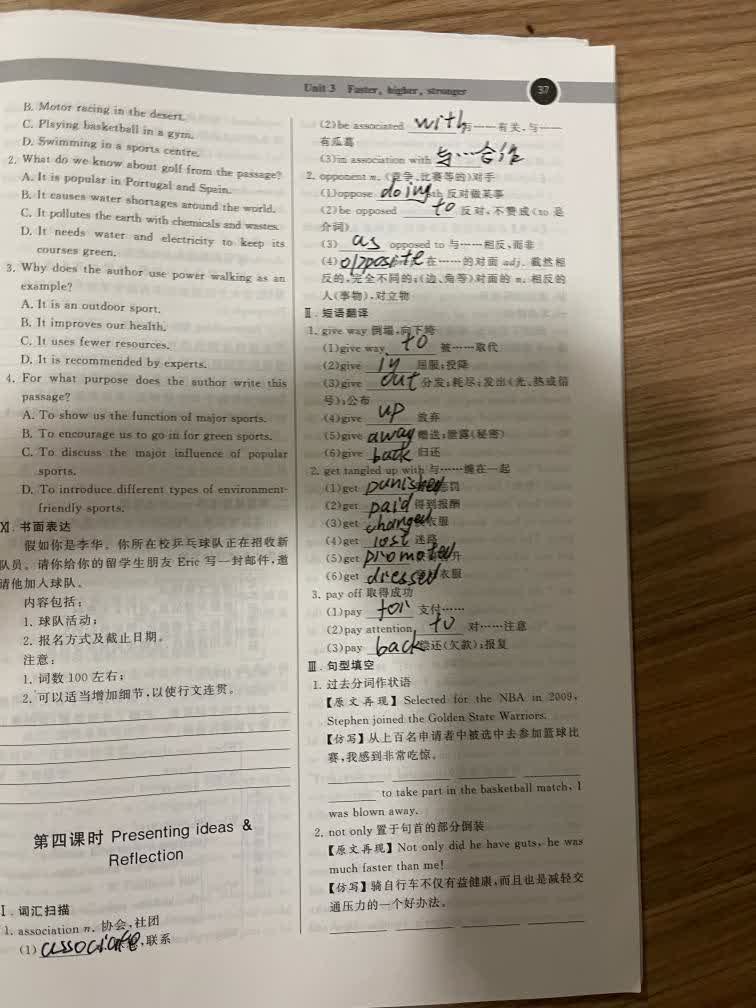 Unit 3 Faster, higher, stronger
37
B. Motor racing in the desert.
C. Playing basketball in a gym.
D. Swimming in a sports centre.
2. What do we know about golf from the passage?
A. It is popular in Portugal and Spain.
B. It causes water shortages around the world.
C. It pollutes the earth with chemicals and wastes.
D. It needs water and electricity to keep its
courses green.
3. Why does the author use power walking as an
example?
A. It is an outdoor sport.
B. It improves our health.
C. It uses fewer resources.
D. It is recommended by experts.
4. For what purpose does the author write this
passage?
A. To show us the function of major sports.
B. To encourage us to go in for green sports.
C. To discuss the major influence of popular
sports.
D. To introduce different types of environment-
friendly sports.
Ⅺ. 书面表达
假如你是李华，你所在校乒乓球队正在招收新
队员。请你给你的留学生朋友 Eric 写一封邮件，邀
请他加入球队。
内容包括：
1. 球队活动；
2. 报名方式及截止日期。
注意：
1. 词数 100 左右；
2. 可以适当增加细节，以使行文连贯。
第四课时 Presenting ideas &
Reflection
Ⅰ. 词汇扫描
1. association n. 协会，社团
(1) associate ，联系
(2)be associated with 与……有关，与……
有瓜葛
(3)in association with 与…合作
2. opponent n. (竞争、比赛等的)对手
(1)oppose doing sth 反对做某事
(2)be opposed to 反对，不赞成(to 是
介词)
(3) as opposed to 与……相反，而非
(4) opposite 在……的对面 adj. 截然相
反的，完全不同的；(边、角等)对面的 n. 相反的
人(事物)，对立物
Ⅱ. 短语翻译
1. give way 倒塌，向下垮
(1)give way to 被……取代
(2)give in 屈服；投降
(3)give out 分发；耗尽；发出(光、热或信
号)；公布
(4)give up 放弃
(5)give away 赠送；泄露(秘密)
(6)give back 归还
2. get tangled up with 与……缠在一起
(1)get punished 惩罚
(2)get paid 得到报酬
(3)get changed 衣服
(4)get lost 迷路
(5)get promoted 升
(6)get dressed 衣服
3. pay off 取得成功
(1)pay for 支付……
(2)pay attention to 对……注意
(3)pay back 偿还(欠款)；报复
Ⅲ. 句型填空
1. 过去分词作状语
【原文再现】Selected for the NBA in 2009,
Stephen joined the Golden State Warriors.
【仿写】从上百名申请者中被选中去参加篮球比
赛，我感到非常吃惊。
to take part in the basketball match, I
was blown away.
2. not only 置于句首的部分倒装
【原文再现】Not only did he have guts, he was
much faster than me!
【仿写】骑自行车不仅有益健康，而且也是减轻交
通压力的一个好办法。